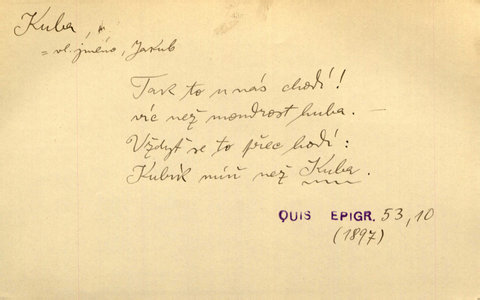 Kuba,
= vl. jméno, Jakub
Tak to u nás chodí!
víc než moudrost huba. –
Vždyť se to přec hodí:
Kubík míň než Kuba.
QUIS EPIGR. 53, 10
(1897)